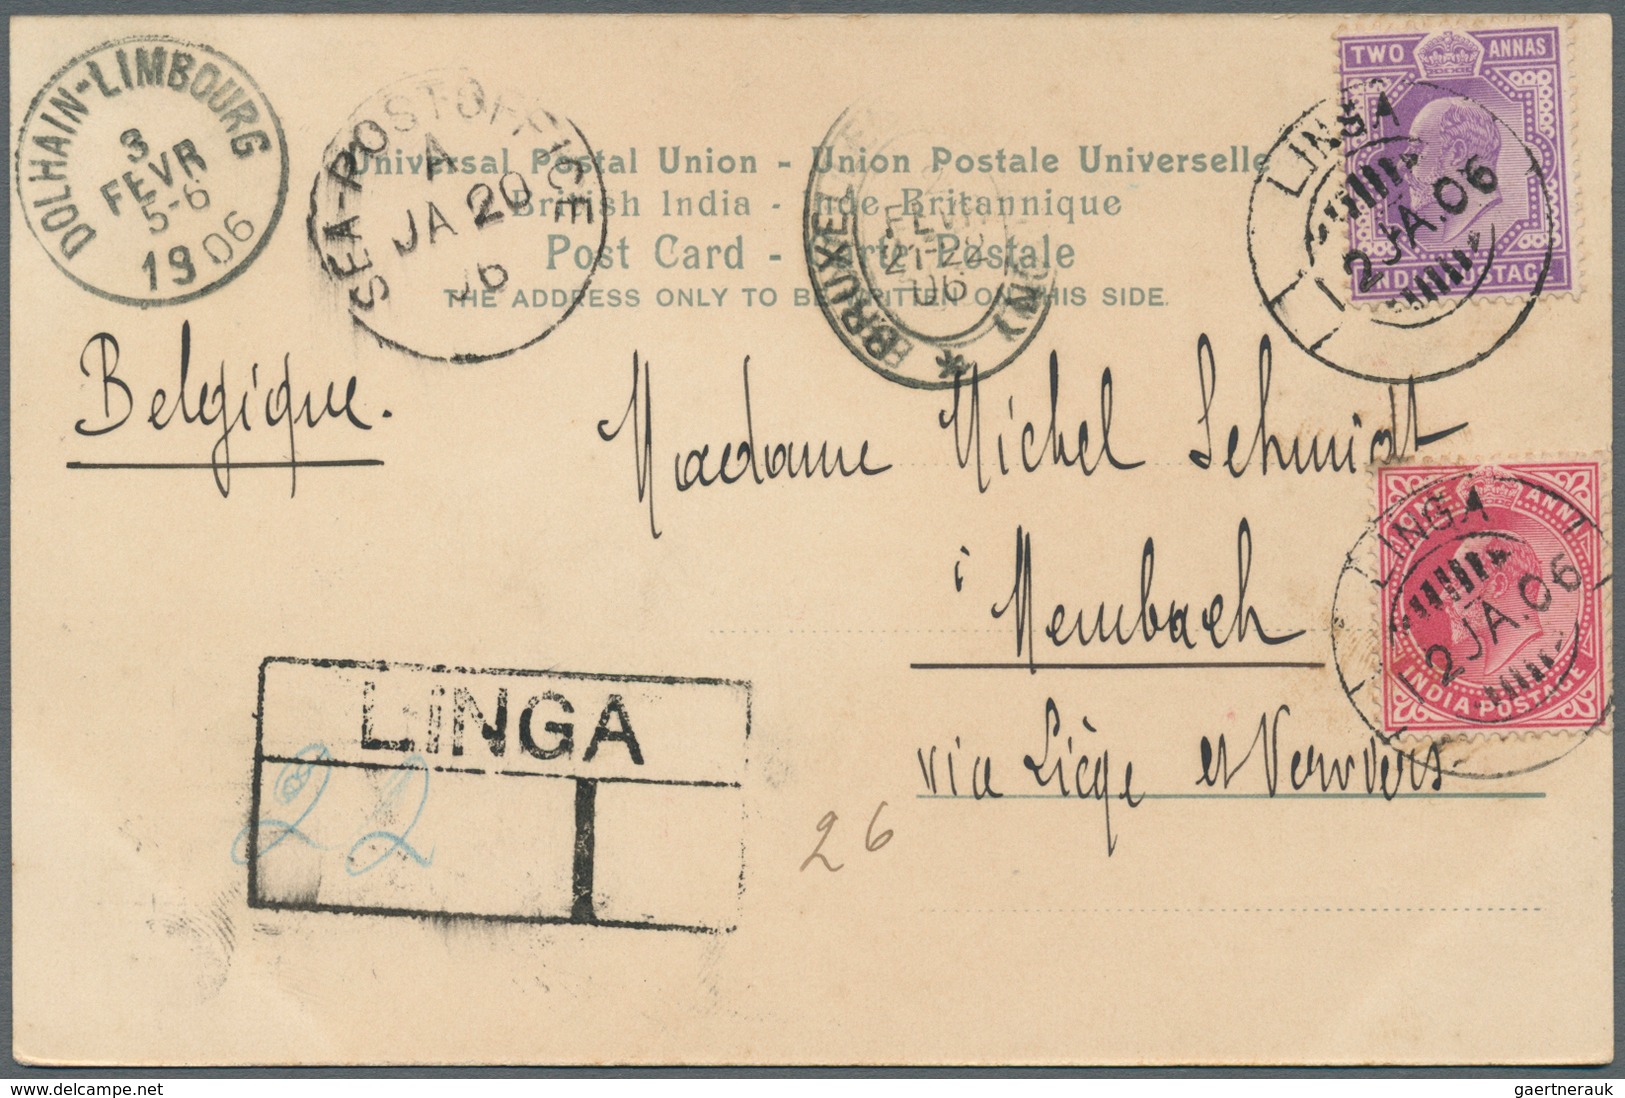 DOLHAIN-LIMBOURG
3
FEVR
5-6
1906
SEA-POST OFFICE
A
JA 20
06
BRUXEL
FEVR
21-22
06
Universal Postal Union - Union Postale Universelle
British India - Inde Britannique
Post Card - Carte Postale
THE ADDRESS ONLY TO BE WRITTEN ON THIS SIDE.
TWO ANNAS
INDIA POSTAGE
LINGA
2 JA.06
Belgique.
Madame Michel Schmidt
à
Membach
via Liège et Verviers
ONE ANNA
INDIA POSTAGE
LINGA
2 JA.06
LINGA
22
26
delcampe.net
gaertnerauk